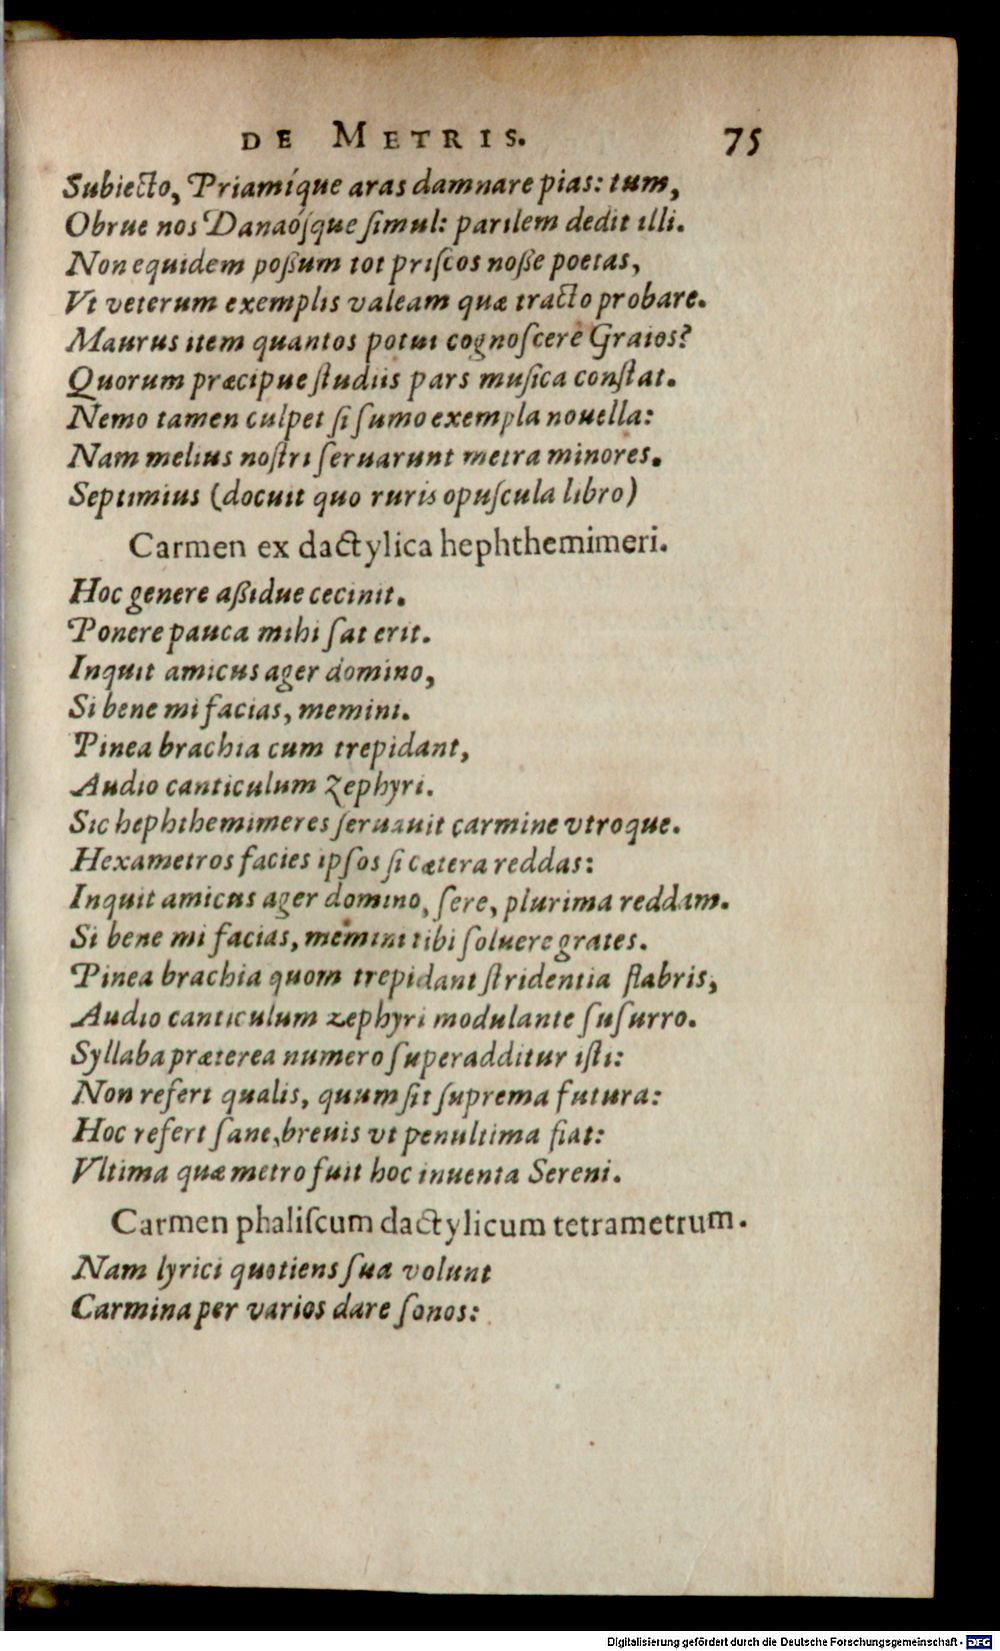 DE METRIS. 75
Subiecto, Priamíque aras damnare pias: tum,
Obrue nos Danaósque ſimul: parilem dedit illi.
Non equidem poßum tot priſcos noße poetas,
Vt veterum exemplis valeam quæ tracto probare.
Maurus item quantos potui cognoſcere Graios?
Quorum præcipue ſtudiis pars muſica conſtat.
Nemo tamen culpet ſi ſumo exempla nouella:
Nam melius noſtri ſeruarunt metra minores.
Septimius (docuit quo ruris opuſcula libro)
Carmen ex dactylica hephthemimeri.
Hoc genere aßidue cecinit.
Ponere pauca mihi ſat erit.
Inquit amicus ager domino,
Si bene mi facias, memini.
Pinea brachia cum trepidant,
Audio canticulum Zephyri.
Sic hephthemimeres ſeruauit carmine vtroque.
Hexametros facies ipſos ſi cætera reddas:
Inquit amicus ager domino, ſere, plurima reddam.
Si bene mi facias, memini tibi ſoluere grates.
Pinea brachia quom trepidant ſtridentia flabris,
Audio canticulum zephyri modulante ſuſurro.
Syllaba præterea numero ſuperadditur iſti:
Non refert qualis, quum ſit ſuprema futura:
Hoc refert ſane, breuis vt penultima fiat:
Vltima quæ metro fuit hoc inuenta Sereni.
Carmen phaliſcum dactylicum tetrametrum.
Nam lyrici quotiens ſua volunt
Carmina per varios dare ſonos:
Digitalisierung gefördert durch die Deutsche Forschungsgemeinschaft - DFG